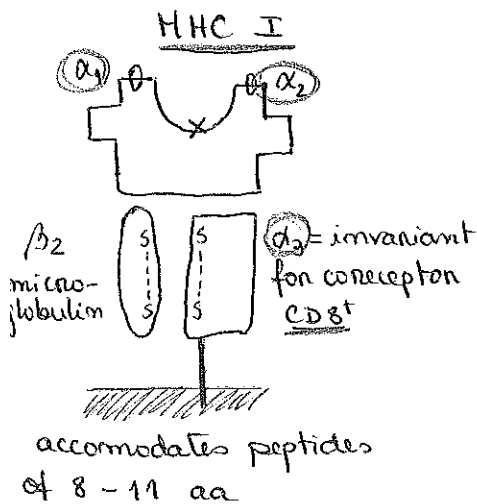 MHC I
α1 α2
β2
micro-
globulin
S S
S S
α3 = invariant
for coreceptor
CD8+
accomodates peptides
of 8 - 11 aa